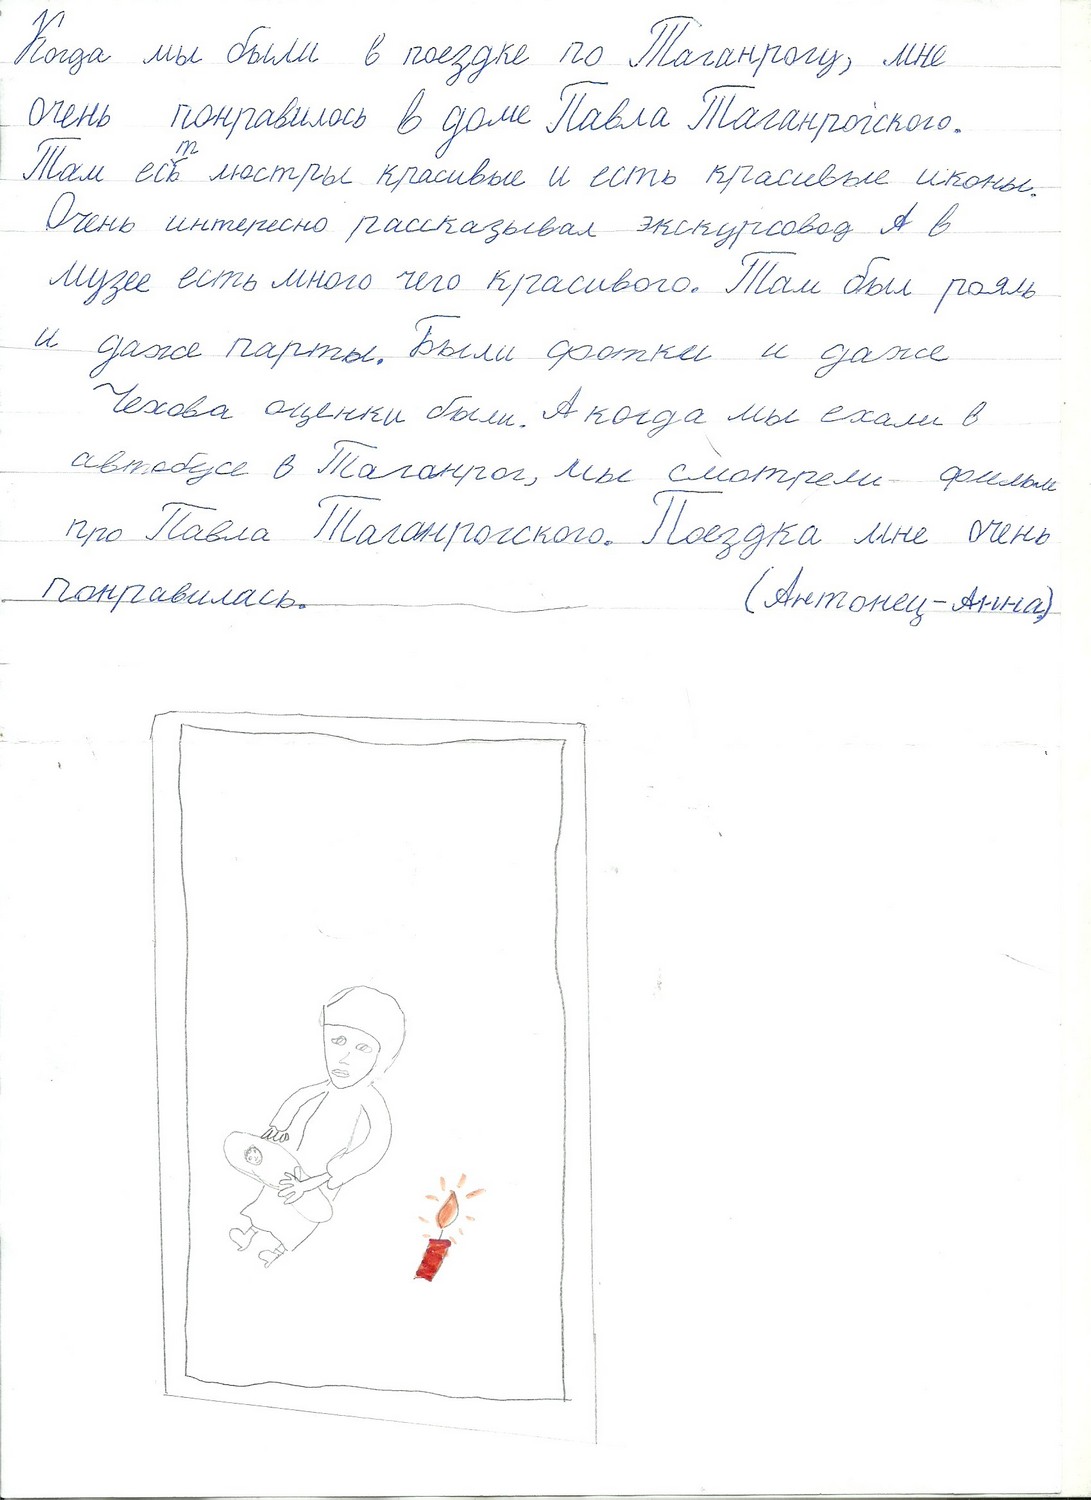 Когда мы были в поездке по Таганрогу, мне
очень понравилось в доме Павла Таганрогского.
Там есть люстры красивые и есть красивые иконы.
Очень интересно рассказывал экскурсовод А в
музее есть много чего красивого. Там был рояль
и даже парты. Были фотки и даже
Чехова оценки были. А когда мы ехали в
автобусе в Таганрог, мы смотрели фильм
про Павла Таганрогского. Поездка мне очень
понравилась. (Антонец-Анна)